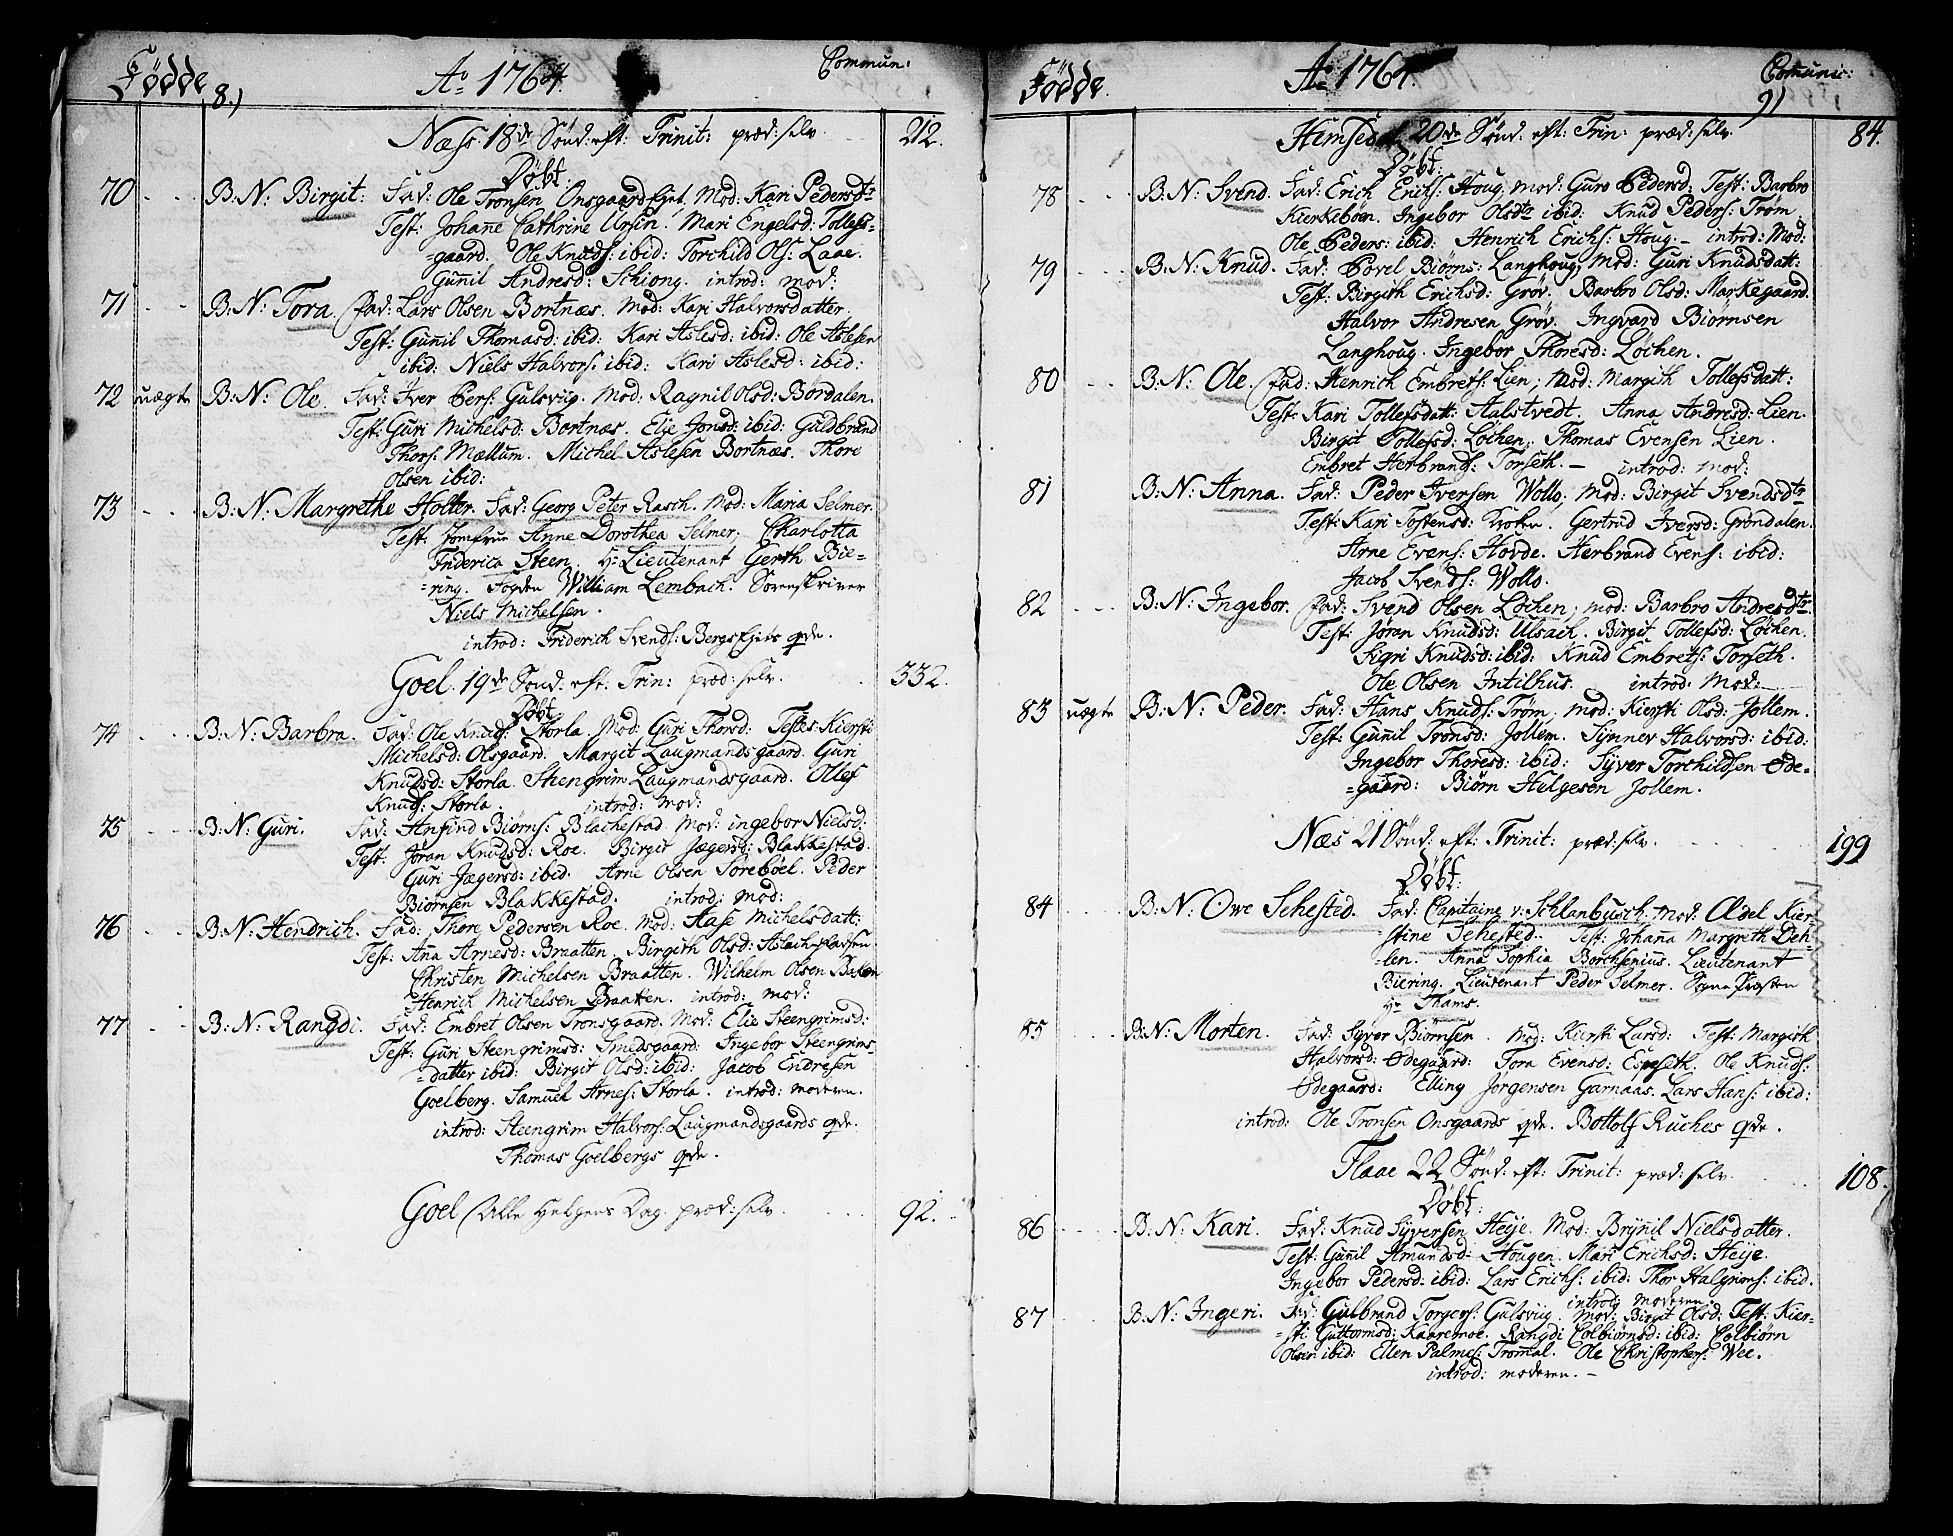 Fødde 8.) Ao 1764. Commun:
Næss. 18de Sønd: eft: Trinit: præd: selv 212.
Døbt:
70 B: N: Birgit: Fad: Ole Tronsen Onsgaards Ejet, Mod: Kari Pedersdtr
Test: Johañe Cathrine Ursin. Mari Engelsd: Tollefs=
=gaard. Ole Knuds: ibid: Torchild Ols: Laae.
Guñil Andresd: Schiong. introd: mod:
71 B: N: Tora. Fad: Lars Olsen Bortnæs. Mod: Kari Halvorsdatter.
Test: Guñil Thomasd: ibid: Kari Aslesd: ibid: Ole Aslesen
ibid: Niels Halvors: ibid: Kari Aslesd: ibid:
72 uægte B: N: Ole. Fad: Iver Pers: Gulsvig. Mod: Ragnil Olsd: Børdalen.
Test: Guri Michelsd: Bortnæs. Elie Jonsd: ibid: Guldbrand
Thors: Mællum. Michel Aslesen Bortnæs. Thore
Olsen ibid:
73 B: N: Margrethe Holter. Fad: Georg Peter Rasch. Mod: Maria Selmer.
Test: Jomfrue Anne Dorothea Selmer; Charlotta
Friderica Steen. Hr Lieutenant Gerth Bie=
=ring. Fogden William Lembach. Sorenskriver
Niels Michelsen.
introd: Friderich Svends: Bergs Ejets qde.
Goel. 19de Sønd: eft: Trin: præd: selv. 332.
Døbt.
74 B: N: Barbra. Fad: Ole Knuds: Storla. Mod: Guri Thorsd: Testes: Kiersti
Michelsd: Olsgaard. Margit Laugmandsgaard. Guri
Knudsd: Storla. Steengrim Laugmandsgaard. Ollef
Knuds: Storla. introd: mod:
75 B: N: Guri. Fad: Anfind Biørns: Blachestad. Mod: ingebor Nielsd:
Test: Jøran Knudsd: Roe. Birgit Jægersd: Blakkestad.
Guri Jægersd: ibid: Arne Olsen Sørebøel. Peder
Biørnsen Blakkestad. introd: mod:
76 B: N: Hendrich. Fad: Thore Pedersen Roe. Mod: Aase Michelsdatt:
Test: Aña Arnesd: Braatten. Birgith Olsd: Aslachpladsen.
Christen Michelsen Braatten. Wilhelm Olsen Bakken
Henrich Michelsen Braatten. introd: mod:
77 B: N: Rangdi. Fad: Embret Olsen Tronsgaard. Mod: Elie Steengrimsd:
Test: Guri Steengrimsd: Smedsgaard: Ingebor Steengrims=
=datter ibid: Birgit Olsd: ibid: Jacob Endresen
Goelberg. Samuel Arnes: Storla. introd: moderen.
introd: Steengrim Halvors: Laugmandsgaards qde.
Thomas Goelbergs qde.
Goel Alle Helgens Dag. præd: selv. 92.
Fødde. Ao 1764. Comunic:
9)
Hemsedal 20de Sønd: eft: Trin: præd: selv 84.
Døbt:
78 B: N: Svend. Fad: Erich Erichs: Houg; mod: Guro Pedersd: Test: Barbro
Kierkebøen. Ingebor Olsdtr ibid: Knud Peders: Trøm.
Ole Peders: ibid: Henrich Erichs: Houg. – introd: Mod:
79 B: N: Knud. Fad: Povel Biørns: Langhoug; Mod: Guri Knudsdatt:
Test: Birgith Erichsd: Grøv. Barbro Olsd: Markegaard.
Halvor Andresen Grøv. Ingvard Biornsen
Langhoug. Ingebor Thoresd: Løchen.
80 B: N: Ole. Fad: Henrich Embrets: Lien; Mod: Margith Tollefsdatt:
Test: Kari Tollefsdatt: Aalstvedt. Anna Andresd: Lien.
Birgit Tollefsd: Løchen; Thomas Evensen Lien.
Embret Herbrands: Torseth. – introd: mod:
81 B: N: Anna. Fad: Peder Iversen Wollo; Mod: Birgit Svendsdtr
Test: Kari Tostensd: Kroken. Gertrud Iversd: Grøndalen.
Arne Evens: Hovde. Herbrand Evens: ibid:
Jacob Svends: Wollo.
82 B: N: Ingebor. Fad: Svend Olsen Løchen; mod: Barbro Andresdtr.
Test: Jøran Knudsd: Ulsach. Birgit Tollefsd: Løchen.
Sigri Knudsd: ibid: Knud Embrets: Torseth.
Ole Olsen Intilhus. introd: Mod:
83 uægte B: N: Peder. Fad: Hans Knuds: Trøm; mod: Kiersti Olsd: Jollem.
Test: Guñil Tronsd: Jollem. Synnev Halvorsd: ibid:
Ingebor Thoresd: ibid: Syver Torchildsen Øde=
=gaard: Biørn Helgesen Jollem.
Næs 21 Sønd: eft: Trinit: præd: selv. 199
Døbt:
84 B: N: Owe Sehested. Fad: Capitaine v: Schlanbusch. Mod. Ædel Kier=
=stine Sehested. Test: Johaña Margreth Deh=
=len. Anna Sophia Borchsenius. Lieutenant
Biering. Lieutenant Peder Selmer. Sogne Præsten
Hr Thams.
85 B: N: Morten. Fad: Syver Biørnsen. Mod: Kiersti Larsd: Test: Margith
Halvorsd: Ødegaard: Tora Evensd: Espeseth. Ole Knuds:
Ødegaard: Elling Jørgensen Garnaas. Lars Hans: ibid:
introd: Ole Tronsen Onsgaards qde. Bottolf Ruches qde.
Flaae 22 Sønd: eft: Trinit: præd: selv. 108.
Døbt:
86 B: N: Kari. Fad: Knud Syversen Heije. Mod: Brynil Nielsdatter.
Test: Guñil Amundsd: Hougen. Mari Erichsd: Heije.
Ingebor Pedersd: ibid: Lars Erichs: ibid: Thor Halgrims: ibid.
introd: moderen.
87 B: N: Ingeri. Fad: Gulbrand Torgers: Gulsviig. Mod: Birgit Olsd: Test: Kier=
=sti Guttormsd: Kaaremoe. Rangdi Colbiørnsd: ibid: Colbiørn
Olsen ibid: Ellen Palmes: Trommal. Ole Christophers: Wee.
introd: moderen. –